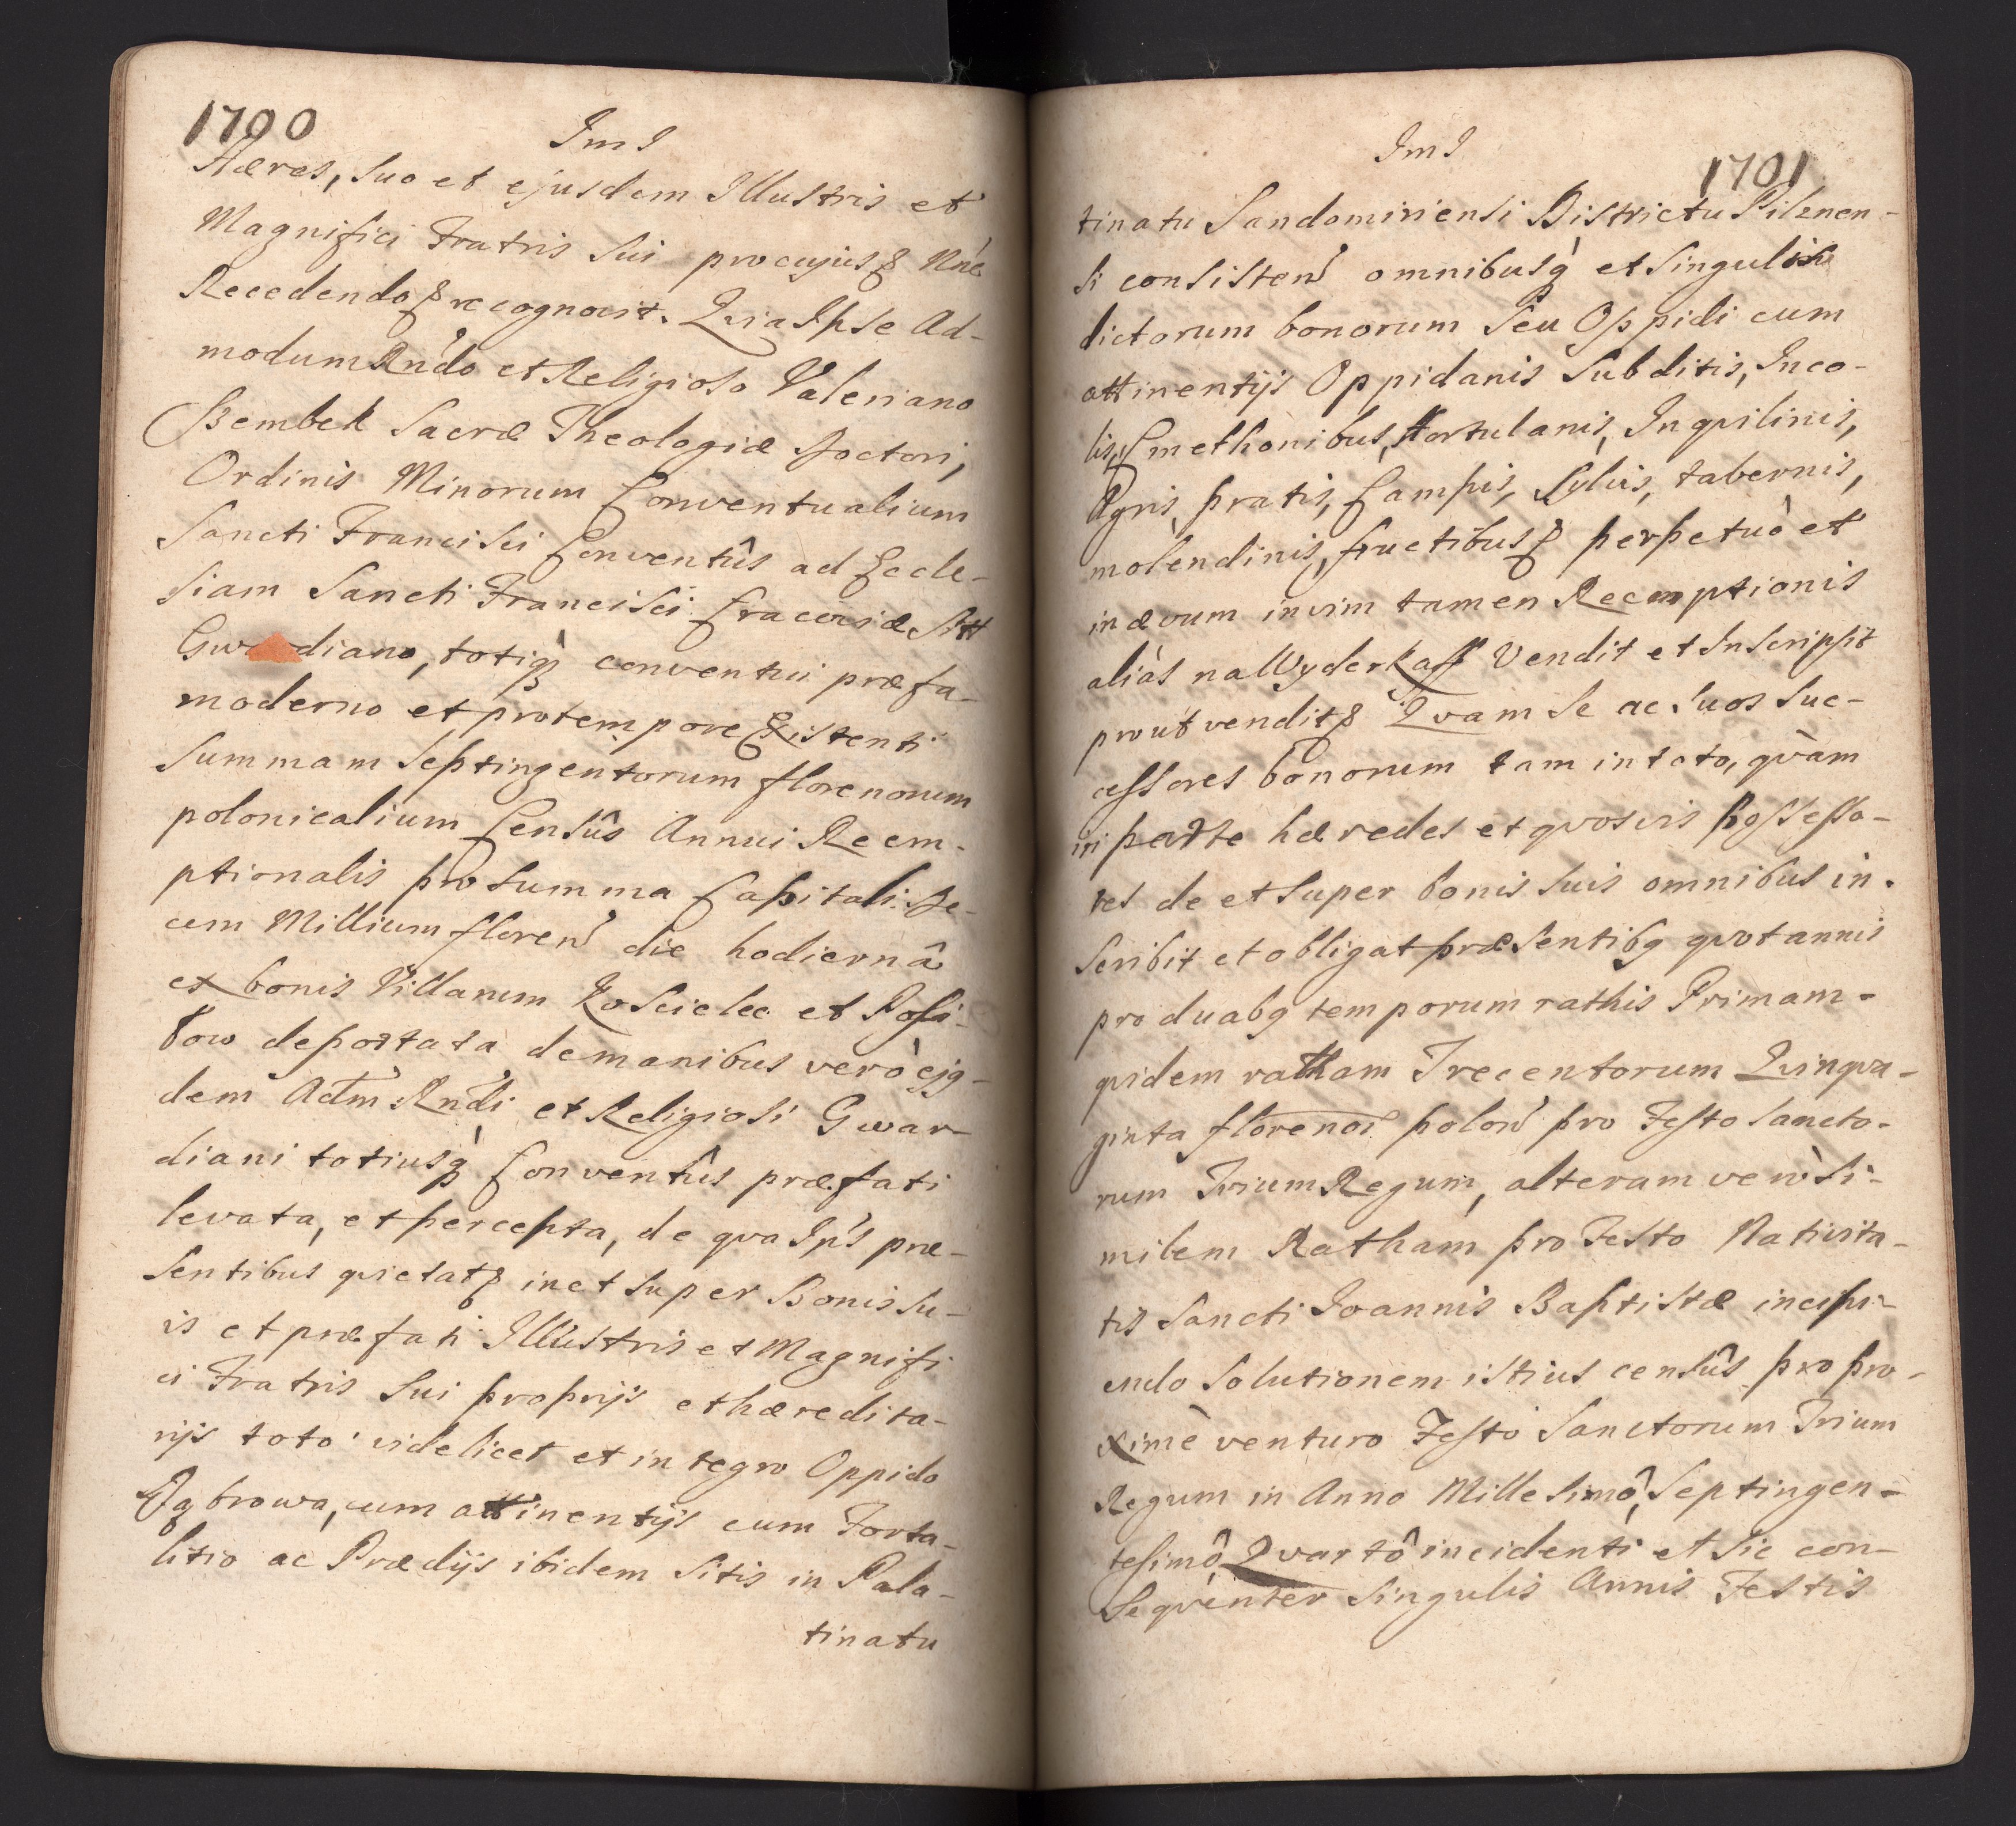 1700
ImI
Hæres, suo et ejusdem Illustris et
Magnifici Fratris sui pro cujus & Nne
Recedendo & recognovit. Quia Ipse Ad-
modum Rndo et Religioso Valeriano
Bembek Sacræ Theologiæ Doctori,
Ordinis Minorum Conventualium
Sancti Francisci Conventûs ad Eccle-
siam Sancti Francisci Cracoviæ Sitt
Gwardiano, totiq conventui præfa-
moderno et pro tempore Existenti
Summam Septingentorum florenorum
polonicalium Censûs Annui Reem-
ptionalis pro summa Capitali De-
cem Millium floren die hodiernâ
ex bonis Villarum Koscielec et Posa-
tow deportata de manibus verò ejq-
dem Adm Rndi et Religiosi Gwar-
diani totiusq Conventûs præfati
levata, et percepta, de qva Ips præ-
sentibus qvietat & in et super Bonis su-
is et præfati Illustris et Magnifi
ci Fratris sui proprijs et hæredita-
rijs toto videlicet et integro Oppido
Dąbrowa, cum attinentijs cum Forta-
litio ac Prædijs ibidem sitis in Pala-
tinatu
ImI
1701
tinatu Sandomiriensi Districtu Pilznen-
si consisten omnibusq et singulis
dictorum bonorum seu Oppidi cum
attinentijs Oppidanis Subditis, Inco-
lis, Cmethonibus, Hortulanis, Inqvilinis,
Agris, pratis, Campis, Sylvis, tabernis,
molendinis, fructibus & perpetuò et
in ævum in vim tamen Reemptionis
aliàs na Wyderkaff Vendit et Inscripsit
prout vendit & Qvam se ac suos suc-
cessores bonorum tam in toto, qvàm
in parte hæredes et qvosvis possesso-
res de et super bonis suis omnibus in-
scribit et obligat præsentibq qvotannis
pro duabq temporum rathis Primam-
qvidem ratham Trecentorum Qvinqva-
ginta florenor polon pro Festo Sancto-
rum Trium Regum, alteram verò si-
milem Ratham pro Festo Nativita-
tis Sancti Joannis Baptistæ incipi-
endo solutionem istius censûs pro pro-
ximè venturo Festo Sanctorum Trium
Regum in Anno Millesimô, Septingen-
tesimô, Qvartô incidenti et sic con-
seqventer singulis Annis Festis